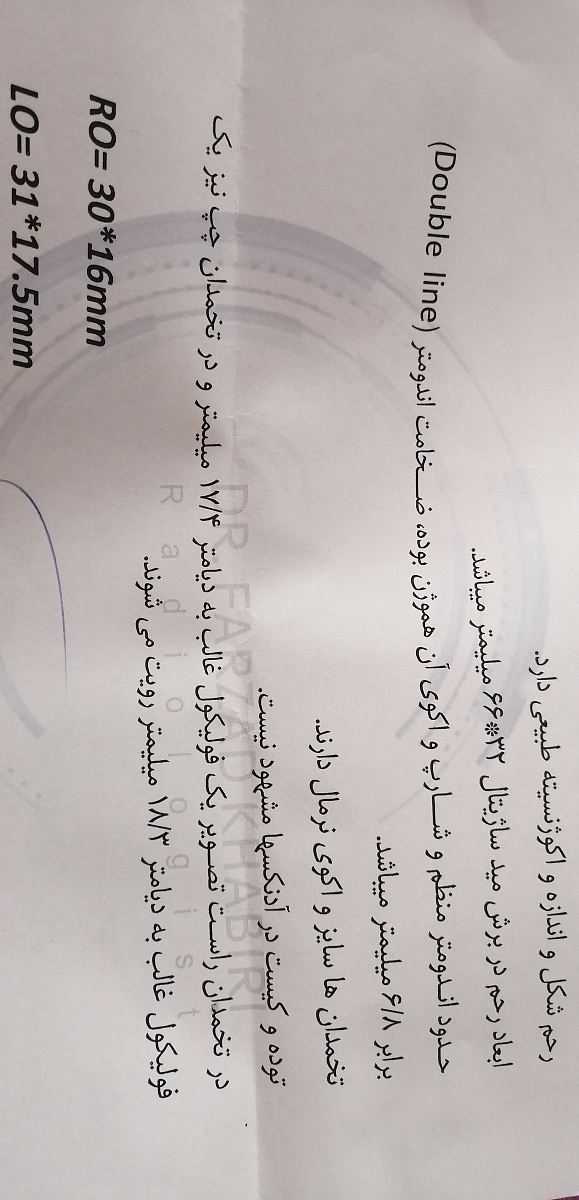 رحم شکل و اندازه و اکوژنسیته طبیعی دارد.
ابعاد رحم در برش مید ساژیتال ۳۲*۶۶ میلیمتر میباشد.
حدود اندومتر منظم و شارپ و اکوی آن هموژن بوده، ضخامت اندومتر (Double line)
برابر ۶/۸ میلیمتر میباشد.
تخمدان ها سایز و اکوی نرمال دارند.
توده و کیست در آدنکسها مشهود نیست.
در تخمدان راست تصویر یک فولیکول غالب به دیامتر ۱۷/۴ میلیمتر و در تخمدان چپ نیز یک
فولیکول غالب به دیامتر ۱۸/۳ میلیمتر رویت می شوند.
RO= 30*16mm
LO= 31*17.5mm
DR. FARZAD KHABIRI
Radiologist